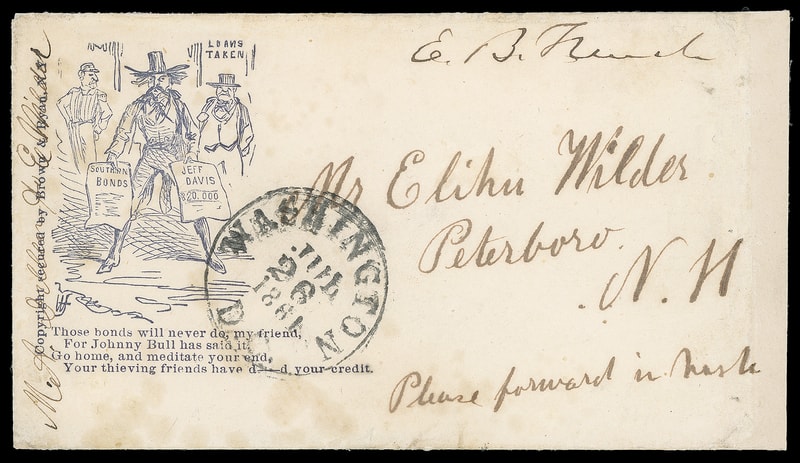 E. B. French
LOANS
TAKEN
SOUTHERN
BONDS
JEFF
DAVIS
$20.000
Mr Elihu Wilder
Peterboro
N. H
WASHINGTON
JUL
26
1861
Those bonds will never do, my friend,
For Johnny Bull has said it,
Go home, and meditate your end,
Your thieving friends have d——d your credit.
Please forward in haste
Copyright secured by Brown & Ryan,
Wilder